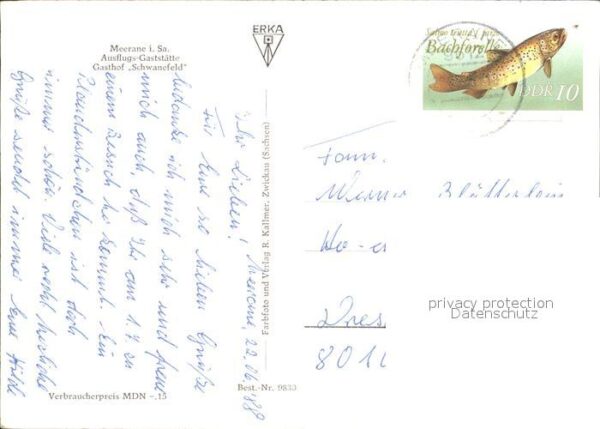 Meerane i. Sa.
Ausflugs-Gaststätte
Gasthof „Schwanefeld"
ERKA
Salmo trutta f. fario
Bachforelle
DDR 10
Ihr Lieben! Meerane, 22.06.'88
Für Eure so lieben Grüße
bedanke ich mich sehr und freue
mich auch, daß Ihr am 1.7. zu
einem Besuch her kommt. Ein
Plauderstündchen ist doch
immer schön. Viele recht herzliche
Grüße sendet immer Eure Hilde
Farbfoto und Verlag R. Kallmer, Zwickau (Sachsen)
Fam.
Werner Blütterlein
Dres
801
privacy protection
Datenschutz
Verbraucherpreis MDN -,15
Best.-Nr. 9830